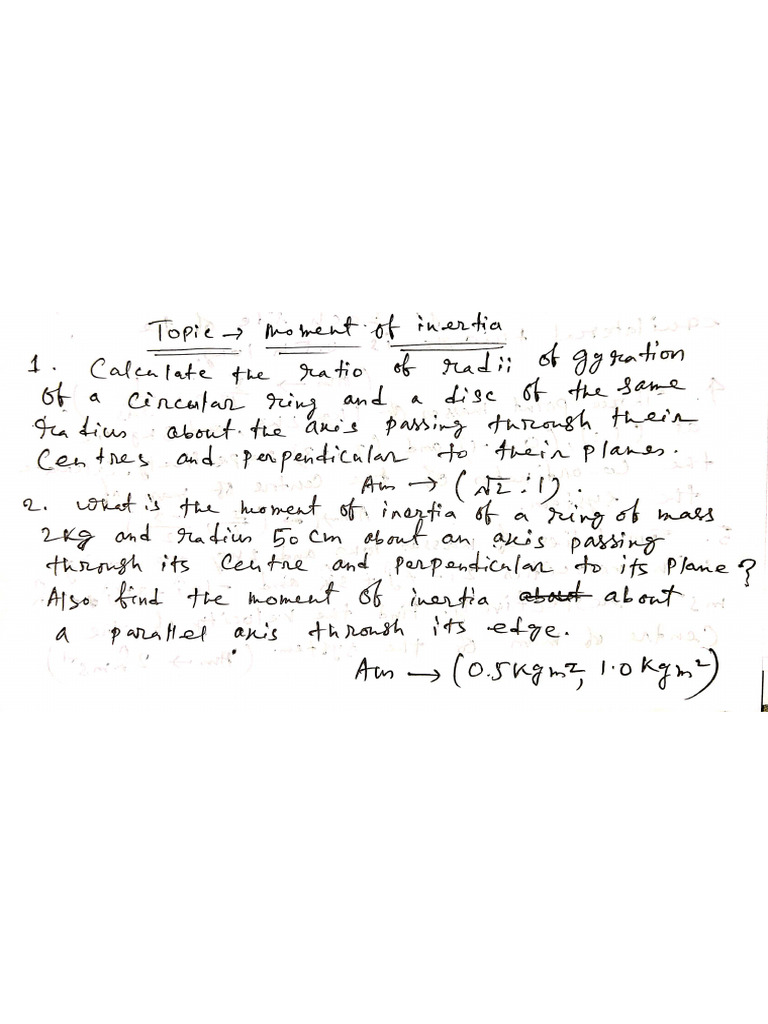 Topic → Moment of inertia
1. Calculate the ratio of radii of gyration
of a circular ring and a disc of the same
radius about the axis passing through their
centres and perpendicular to their planes.
Ans → (√2 : 1).
2. What is the moment of inertia of a ring of mass
2kg and radius 50 cm about an axis passing
through its centre and perpendicular to its plane?
Also find the moment of inertia about about
a parallel axis through its edge.
Ans → (0.5 kgm², 1.0 kgm²)